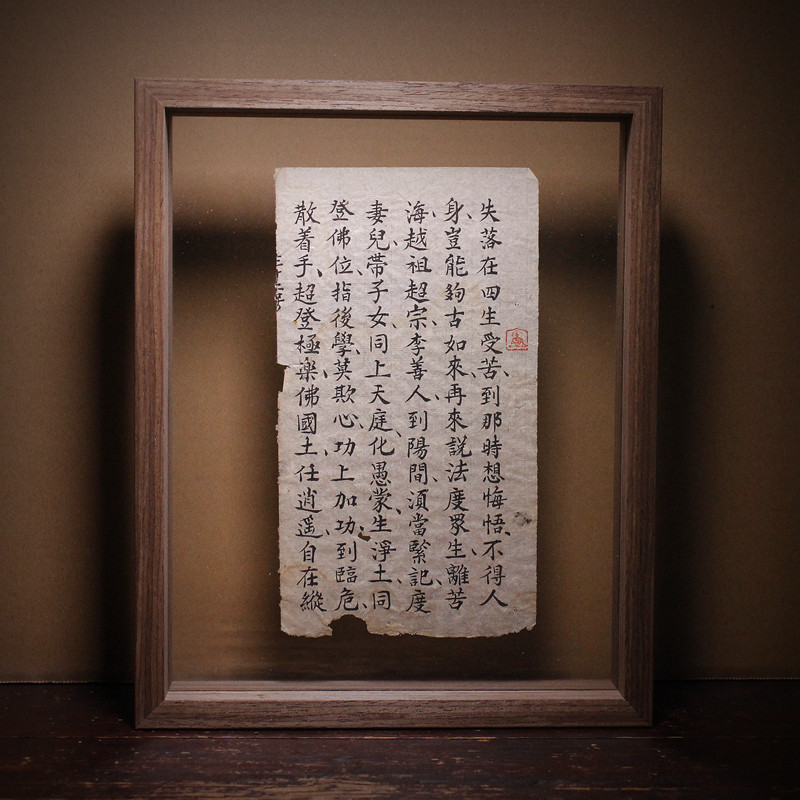 失落在四生受苦、到那時想悔悟、不得人
身、豈能夠古如來、再來説法度眾生、離苦
海、越祖超宗、李善人、到陽間、湏當緊記、度
妻兒、帶子女、同上天庭、化愚蒙、生淨土、同
登佛位、指後學、莫欺心、功上加功、到臨危、
散着手、超登極楽佛國土、任逍遥、自在縱